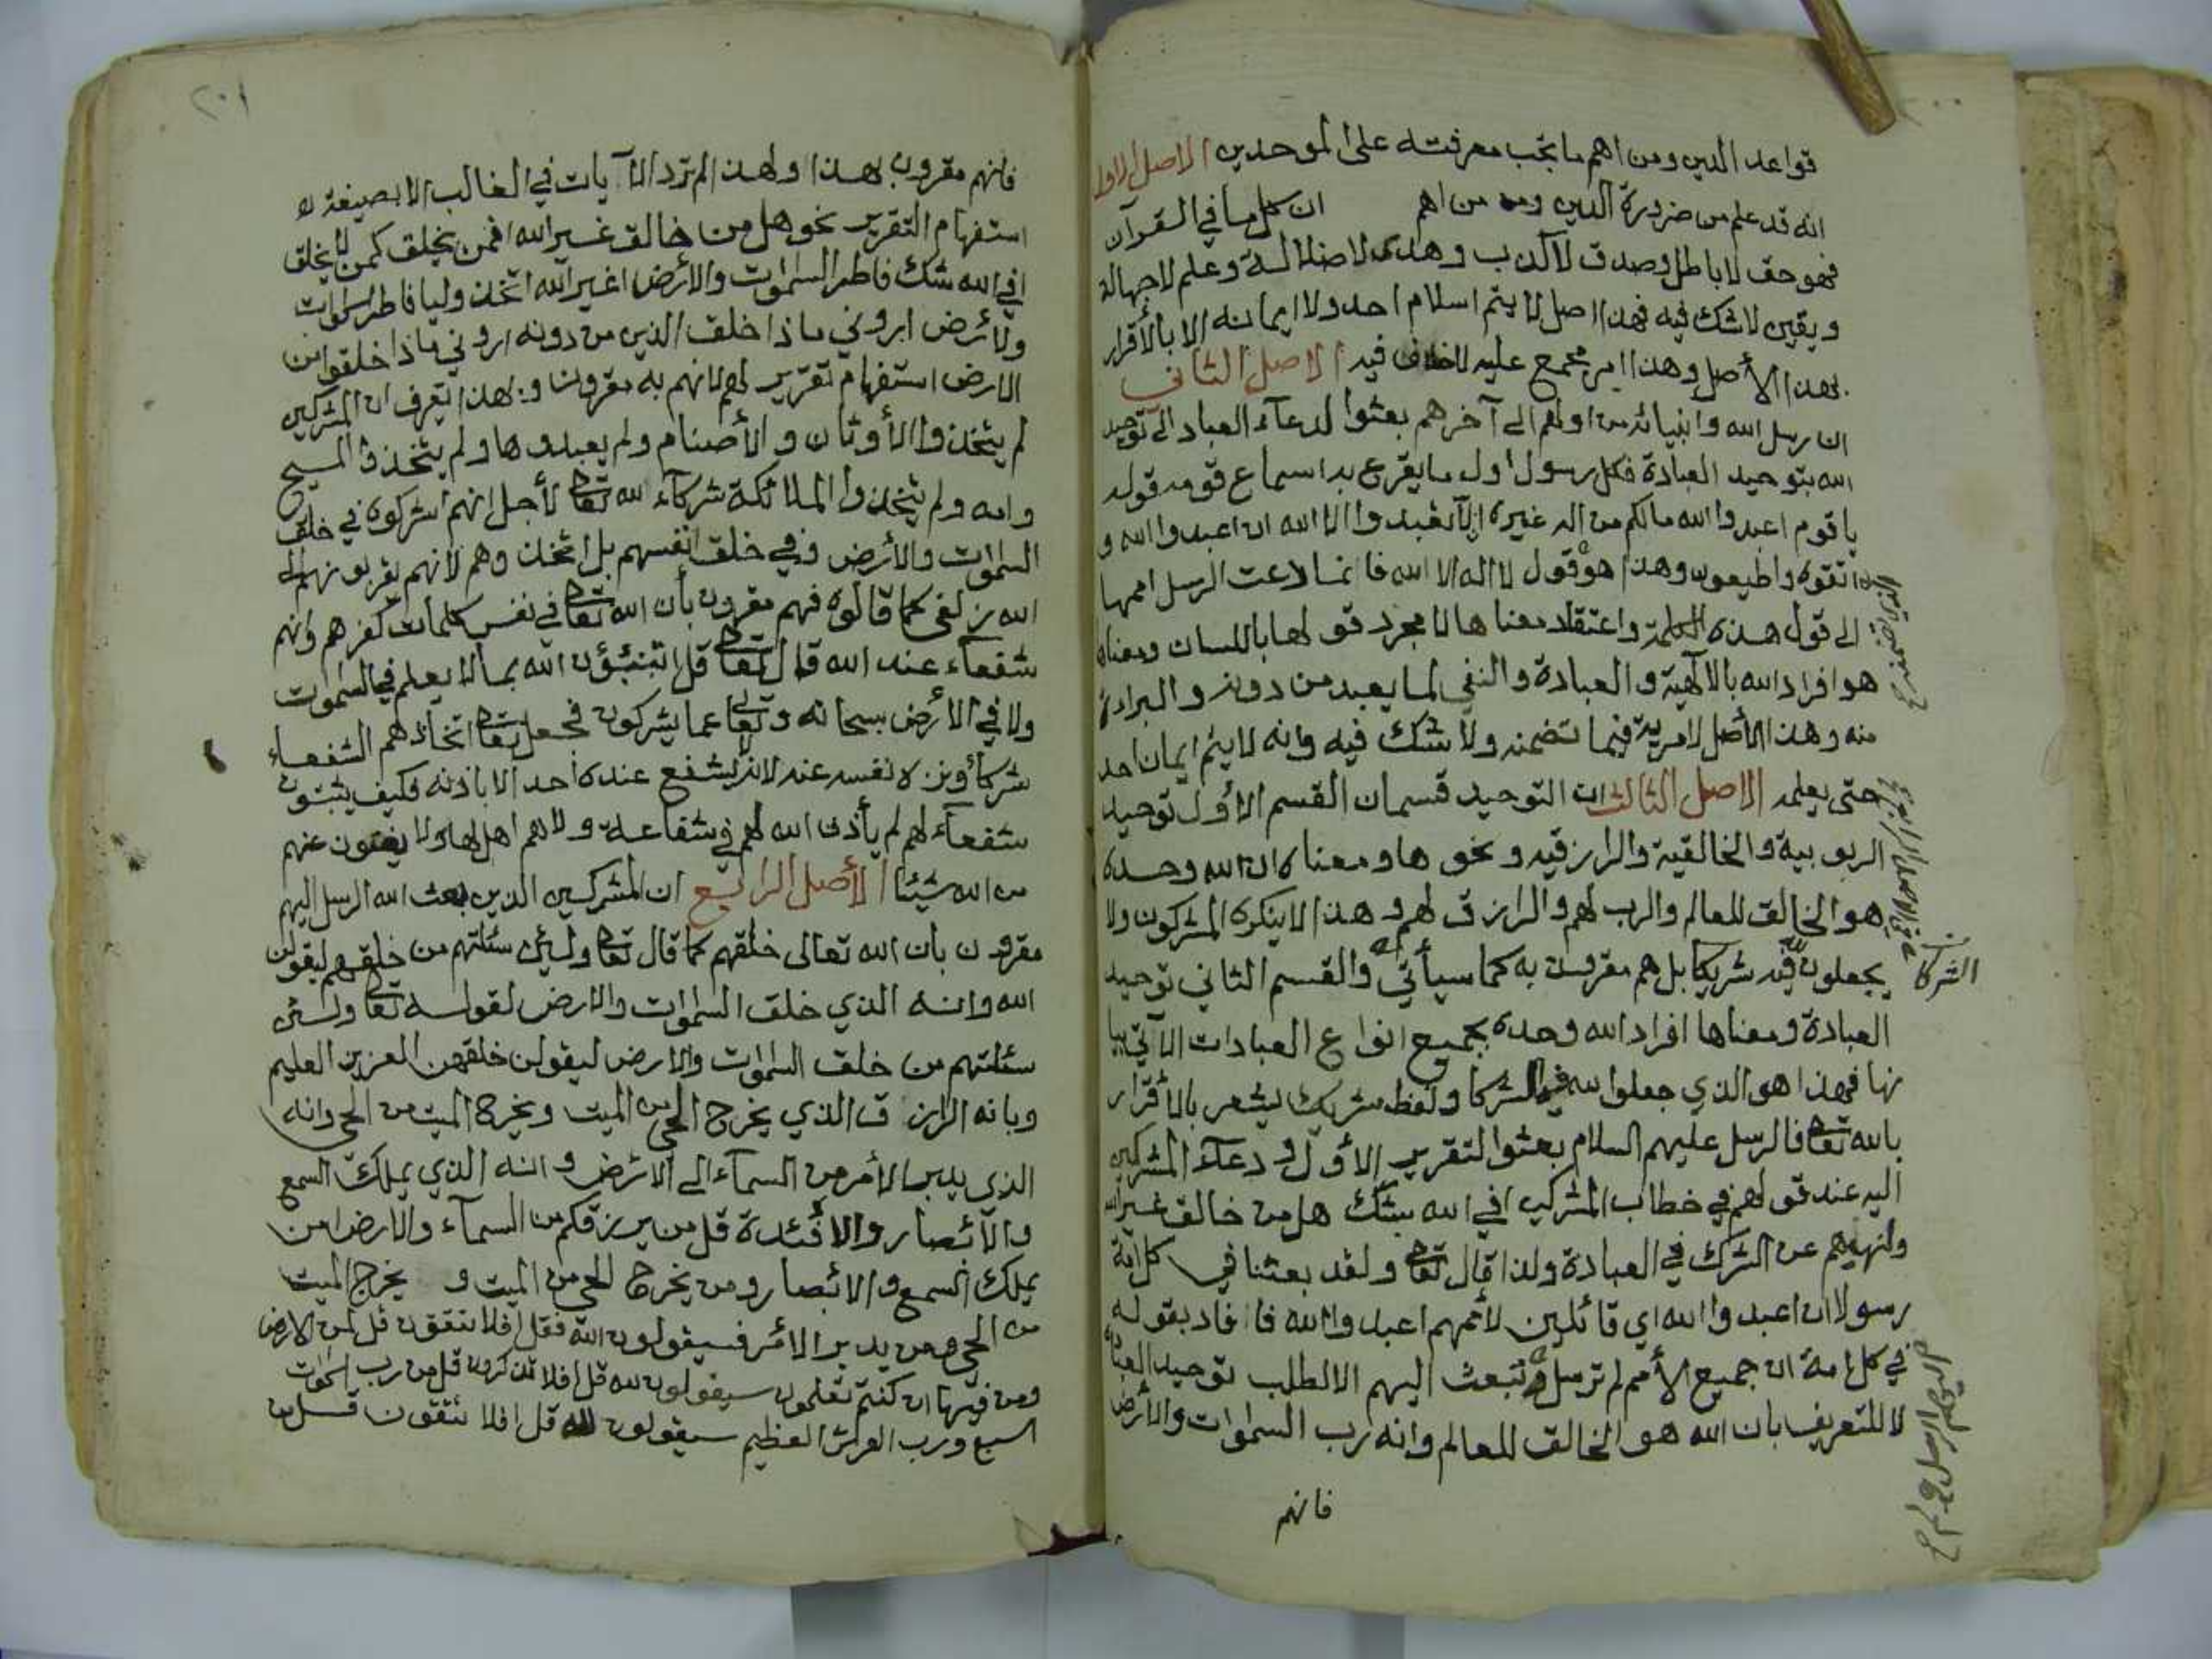 قواعد الدين ومن اهم ما يجب معرفته على الموحدين الاصل الاول
انه قد علم من ضرورة الدين ومن من اهم ان كل ما في القرآن
فهو حق لا باطل وصدق لا كذب وهدى لا ضلالة وعلم لا جهالة
ويقين لا شك فيه فهذا اصل لا يتم اسلام احد ولا ايمانه الا بالأقرار
بهذا الأصل وهذا امر مجمع عليه لا خلاف فيه الاصل الثاني
ان رسل الله وانبيائه من اولهم الى آخرهم بعثوا لدعآء العباد الى توحيد
الله بتوحيد العبادة فكل رسول اول ما يقرع به اسماع قومه قوله
يا قوم اعبدوا الله مالكم من اله غيره ألا تعبدوا الا الله ان اعبدوا الله و
اتقوه واطيعون وهذا هو قول لا اله الا الله فانما دعت الرسل اممها
الى قول هذه الكلمة واعتقاد معناها لا مجرد قولها باللسان ومعناه
هو افراد الله بالالهية والعبادة والنفي لما يعبد من دونه والبراءة
منه وهذا الأصل لا مرية فيما تضمنه ولا شك فيه وانه لا يتم ايمان احد
حتى يعلمه الاصل الثالث ان التوحيد قسمان القسم الأول توحيد
الربوبية والخالقية والرازقيه ونحوها ومعناه ان الله وحده
هو الخالق للعالم والرب لهم والرازق لهم وهذا لا ينكره المشركون ولا
يجعلون لله فيه شريكا بل هم مقرون به كما سيأتي والقسم الثاني توحيد
الشركا
العبادة ومعناها افراد الله وحده بجميع انواع العبادات الآتي بيا
نها فهذا هو الذي جعلوا لله فيه الشركا ولفظ شريك يشعر بالأقرار
بالله تعالى فالرسل عليهم السلام بعثوا لتقرير الأول ودعآء المشركين
اليه عند قولهم في خطاب المشركين افي الله شك هل من خالق غير الله
ولنهيهم عن الشرك في العبادة ولذا قال تعالى ولقد بعثنا في كل امة
رسولا ان اعبدوا الله اي قائلين لأممهم اعبدوا الله فافاد بقوله
في كل امة ان جميع الأمم لم ترسل وتبعث اليهم الا لطلب توحيد العبادة
لا للتعريف بان الله هو الخالق للعالم وانه رب السموات والأرض
فانهم
٢٠١
فانهم مقرون بهذا ولهذا لم ترد الآيات في الغالب الا بصيغة
استفهام التقرير نحو هل من خالق غير الله افمن يخلق كمن لا يخلق
افي الله شك فاطر السموات والأرض اغير الله اتخذ وليا فاطر السموات
والأرض اروني ماذا خلق الذين من دونه اروني ماذا خلقوا من
الارض استفهام تقرير لهم لانهم به مقرون وبهذا تعرف ان المشركين
لم يتخذوا الأوثان والأصنام ولم يعبدوها ولم يتخذوا المسيح
وامه ولم يتخذوا الملائكة شركآء لله تعالى لأجل انهم اشركوه في خلق
السموات والأرض وفي خلق انفسهم بل اتخذوهم لأنهم يقربونهم الى
الله زلفى كما قالوه فهم مقرون بأن الله تعالى في نفس كلمات كفرهم وانهم
شفعآء عند الله قال تعالى قل اتنبئون الله بما لا يعلم في السموات
ولا في الأرض سبحانه وتعالى عما يشركون فجعل تعالى اتخاذهم الشفعاء
شركا ونزه نفسه عنه لانه لا يشفع عنده احد الا باذنه فكيف يثبتون
شفعآء لهم لم يأذن الله لهم في شفاعة ولا هم اهل لها ولا يغنون عنهم
من الله شيئا الأصل الرابع ان المشركين الذين بعث الله الرسل اليهم
مقرون بان الله تعالى خلقهم كما قال تعالى ولئن سئلتهم من خلقهم ليقولن
الله وانه الذي خلق السموات والارض لقوله تعالى ولئن
سئلتهم من خلق السموات والارض ليقولن خلقهن العزيز العليم
وبانه الرازق الذي يخرج الحي من الميت ويخرج الميت من الحي وانه
الذي يدبر الأمر من السمآء الى الارض وانه الذي يملك السمع
والأبصار والافئدة قل من يرزقكم من السمآء والارض امن
يملك السمع والابصار ومن يخرج الحي من الميت و يخرج الميت
من الحي ومن يدبر الامر فسيقولون الله فقل افلا تتقون قل لمن الارض
ومن فيها ان كنتم تعلمون سيقولون لله قل افلا تذكرون قل من رب السموات
السبع ورب العرش العظيم سيقولون لله قل افلا تتقون قل من